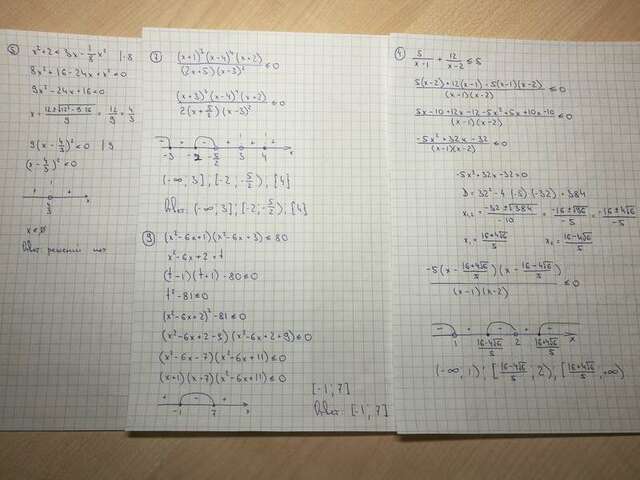 ⑤ x² + 2 < 3x - 1/8 x² | · 8
8x² + 16 - 24x + x² < 0
9x² - 24x + 16 < 0
x = (12 ± √(12² - 9·16))/9 = 12/9 = 4/3
9(x - 4/3)² < 0 | 9
(x - 4/3)² < 0
+ +
4/3 x
x ∈ ∅
Ответ решений нет
⑦ (x+1)³(x-4)⁴(x+2) / (2x+5)(x-3)² ≤ 0
(x+3)³(x-4)⁴(x+2) / 2(x+5/2)(x-3)² ≤ 0
- + - + + +
-3 -2 -5/2 3 4 x
(-∞, 3], [-2, -5/2), [4]
Ответ: (-∞, 3], [-2, -5/2), [4]
⑨ (x²-6x+1)(x²-6x+3) ≤ 80
x² - 6x + 2 = t
(t-1)(t+1) - 80 ≤ 0
t² - 81 ≤ 0
(x²-6x+2)² - 81 ≤ 0
(x²-6x+2-9)(x²-6x+2+9) ≤ 0
(x²-6x-7)(x²-6x+11) ≤ 0
(x+1)(x-7)(x²-6x+11) ≤ 0
+ - +
-1 7 x
[-1; 7]
Ответ: [-1; 7]
5/(x-1) + 12/(x-2) ≤ 5
5(x-2) + 12(x-1) - 5(x-1)(x-2) / (x-1)(x-2) ≤ 0
5x-10+12x-12-5x²+5x+10x-10 / (x-1)(x-2) ≤ 0
-5x²+32x-32 / (x-1)(x-2) ≤ 0
-5x²+32x-32=0
D = 32² - 4·(-5)·(-32) = 384
x₁,₂ = (-32 ± √384)/-10 = (-16 ± √96)/-5 = (-16 ± 4√6)/-5
x₁ = (16+4√6)/5 x₂ = (16-4√6)/5
-5(x - (16+4√6)/5)(x - (16-4√6)/5) / (x-1)(x-2) ≤ 0
- + - + -
1 (16-4√6)/5 2 (16+4√6)/5 x
(-∞, 1); [(16-4√6)/5; 2), [(16+4√6)/5, +∞)